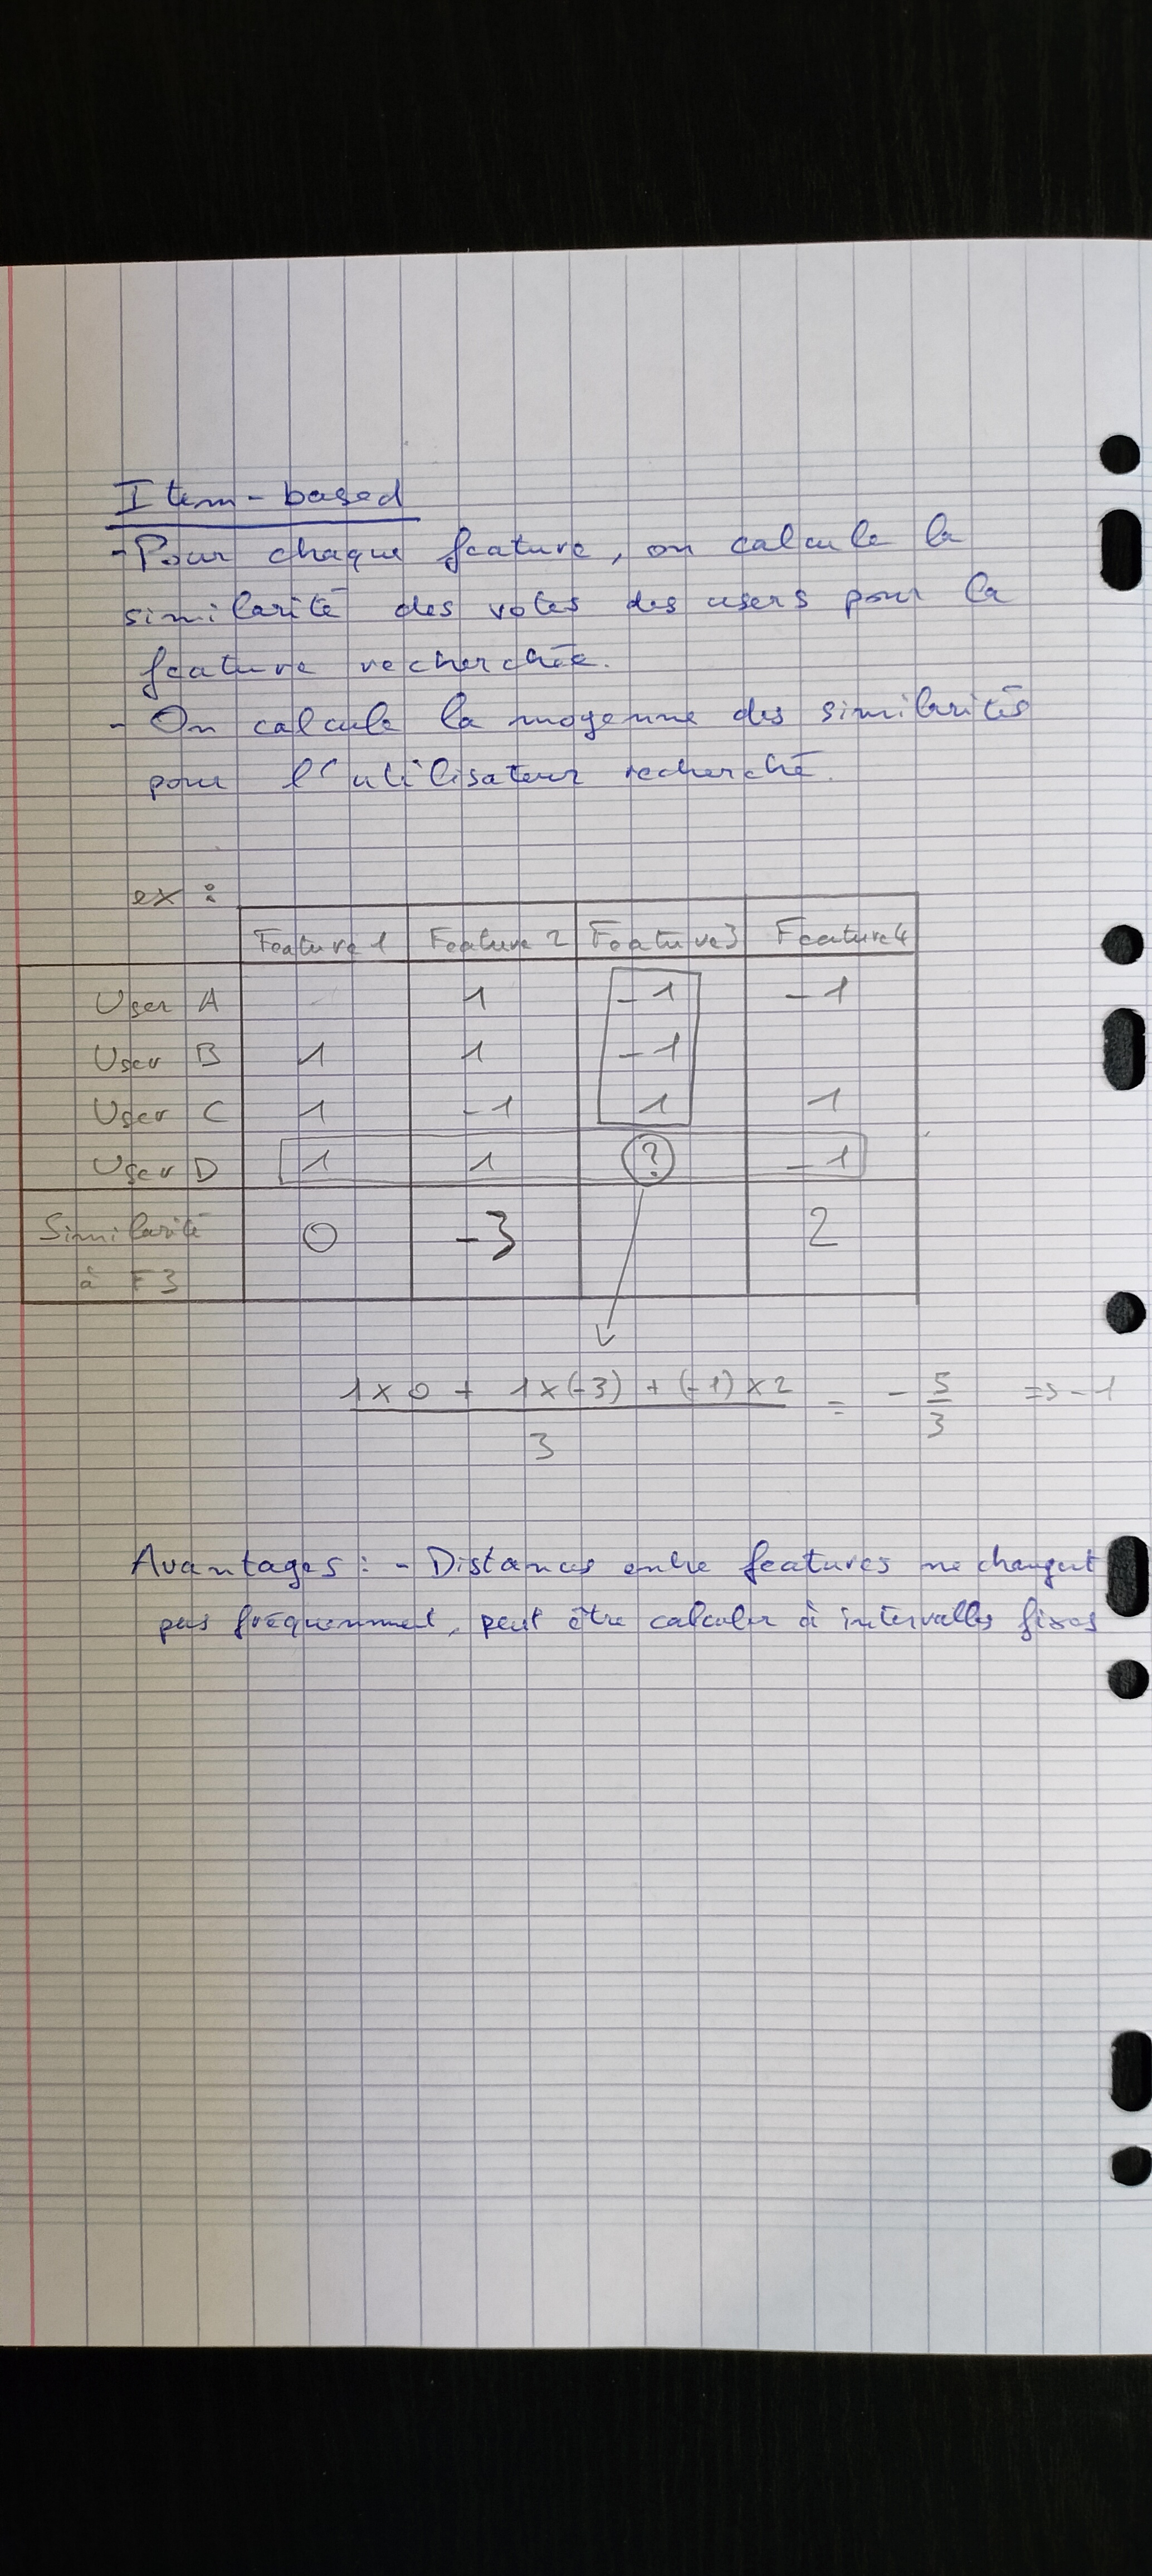 Item-based
- Pour chaque feature, on calcule la
similarité des votes des users pour la
feature recherchée.
- On calcule la moyenne des similarités
pour l'utilisateur recherché.
ex :
Feature 1 Feature 2 Feature 3 Feature 4
User A 1 -1 -1
User B 1 1 -1
User C 1 -1 1 1
User D 1 1 ? -1
Similarité 0 -3 2
à F3
1 x 0 + 1 x (-3) + (-1) x 2
3
= - 5/3 => -1
Avantages : - Distances entre features ne changent
pas fréquemment, peut être calculer à intervalles fixes